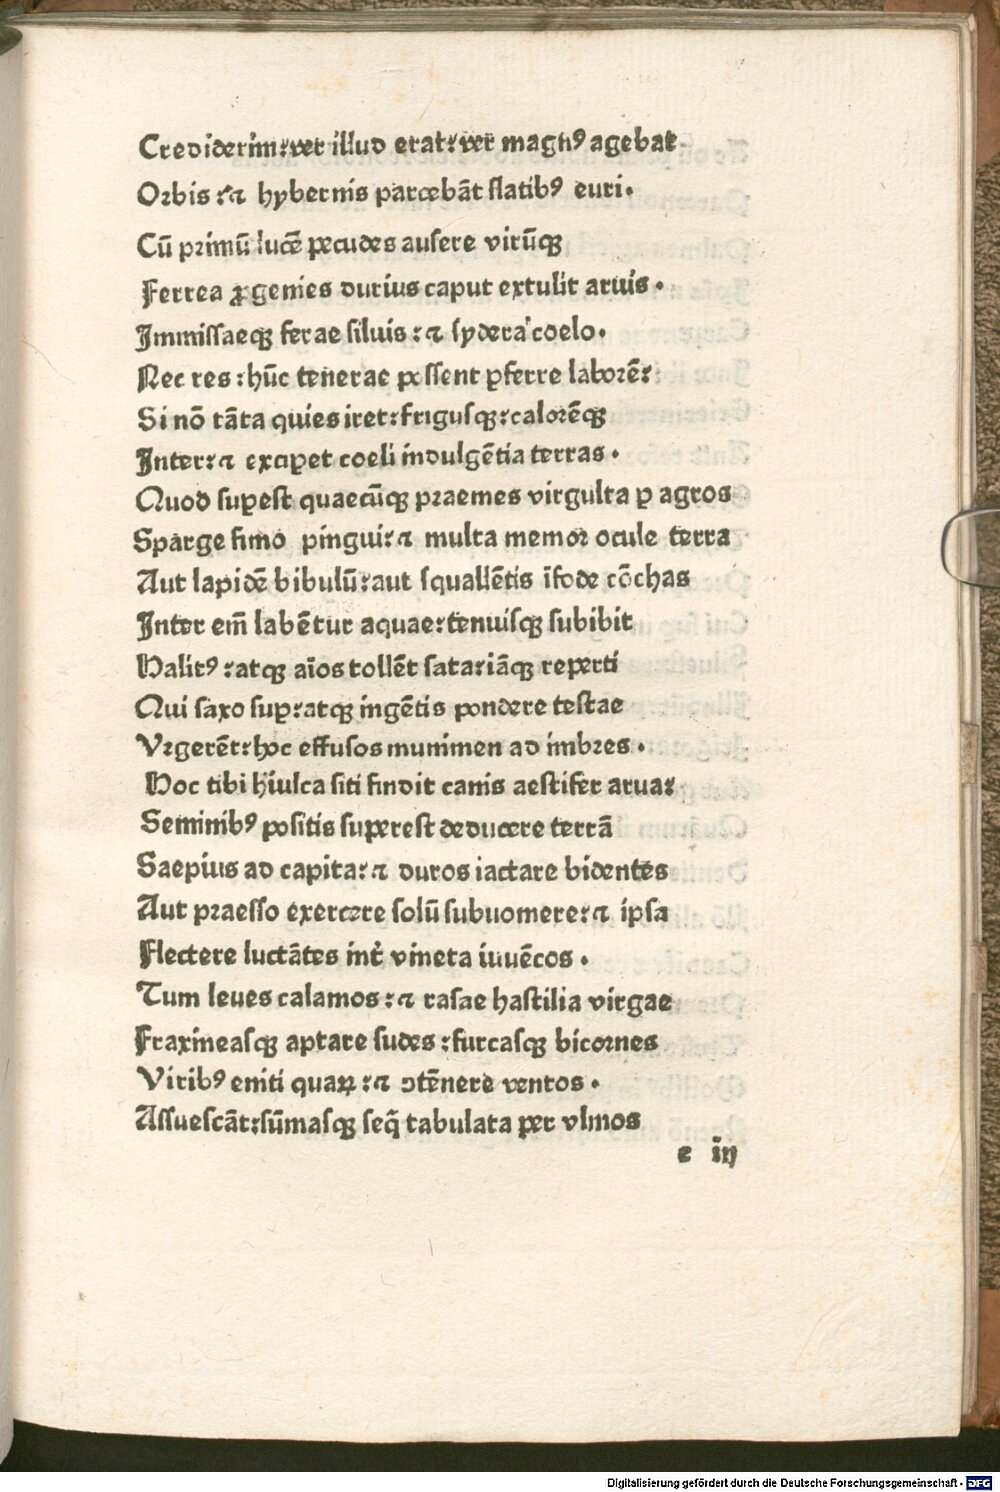 Crediderim: ver illud erat: ver magnꝰ agebat
Orbis: ⁊ hybernis parcebāt flatibꝰ euri.
Cū primū lucē pecudes ausere virūqꝫ
Ferrea ꝓgenies durius caput extulit aruis.
Immissaeqꝫ ferae siluis: ⁊ sydera coelo.
Nec res: hūc tenerae possent ꝑferre laborē:
Si nō tāta quies iret: frigusqꝫ: calorēqꝫ
Inter: ⁊ exciperet coeli indulgētia terras.
Quod suꝑest quaecūqꝫ praemes virgulta ꝑ agros
Sparge fimo pingui: ⁊ multa memor ocule terra
Aut lapidē bibulū: aut squallētis īfode cōchas
Inter em̄ labētur aquae: tenuisqꝫ subibit
Halitꝰ: atqꝫ aīos tollēt sata: iāqꝫ reperti
Qui saxo suꝑ: atqꝫ ingētis pondere testae
Vrgerēt: hoc effusos munimen ad imbres.
Hoc tibi hiulca siti findit canis aestifer arua:
Seminibꝰ positis superest deducere terrā
Saepius ad capita: ⁊ duros iactare bidentes
Aut praesso exercere solū subuomere: ⁊ ipsa
Flectere luctātes int̉ vineta iuuēcos.
Tum leues calamos: ⁊ rasae hastilia virgae
Fraxineasqꝫ aptare sudes: furcasqꝫ bicornes
Viribꝰ eniti quaꝝ: ⁊ ↄtēnere ventos.
Assuescāt: sūmasqꝫ seq̄ tabulata per vlmos
e iij
Digitalisierung gefördert durch die Deutsche Forschungsgemeinschaft - DFG